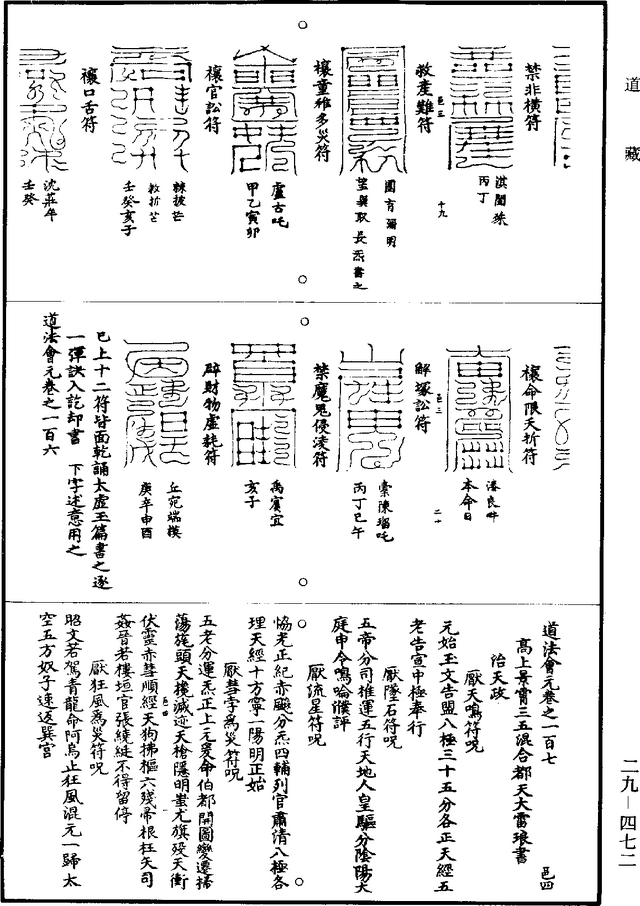 道藏
禁非橫符
淇閶殊
丙丁
救產難符
邑三
十九
國有彌明
望與取長炁書之
禳童稚多災符
盧古吒
甲乙寅卯
禳官訟符
救折芒
壬癸亥子
禳口舌符
沈莊年
壬癸
禳命限夭折符
本命日
解塚訟符
邑三
二十
丙丁巳午
禁魔鬼侵淩符
禹賓宜
亥子
辟財物虛耗符
丘宛端模
庚辛申酉
已上十二符皆面乾誦太虛玉篇書之逐
一彈訣入訖却書　下字述意用之
道法會元卷之一百六
道法會元卷之一百七　邑四
高上景霄三五混合都天大雷琅書
治天政
厭天鳴符呪
元始玉文告盟八極三十五分各正天經五
老告宣中極奉行
厭墜石符呪
五帝分司推運五行天地人皇驅分陰陽大
庭申令鳴唅濮評
厭流星符呪
恊光正紀赤飈分炁四輔列官肅清八極各
理天經十方寧一陽明正始
厭彗孛為災符呪
五老分運炁正上元爰命伯都開圖變遷掃
蕩旄頭天欃滅迹天槍隱明蚩尤旗歿天衝
伏靈赤彗順經天狗拂樞六殘帝根枉矢司
姦晉若樓垣官張繞綎不得留停
邑四
厭狂風為災符呪
昭文若駕青龍命阿烏止狂風混元一歸太
空五方奴子速返巽宮
二九－四七二